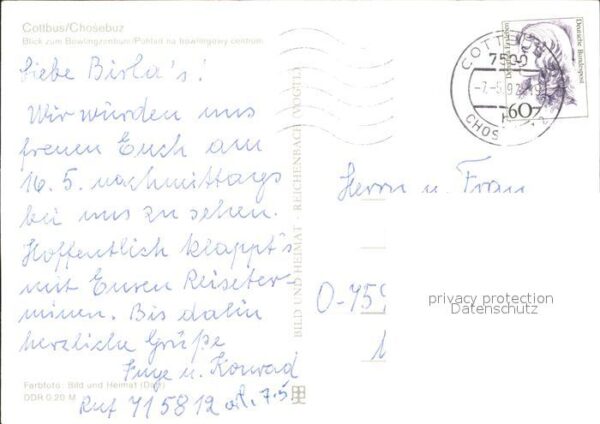 Cottbus/Chośebuz
Blick zum Bowlingzentrum/Pohlěd na bowlingowy centrum
Liebe Birla's!
Wir würden uns
freuen Euch am
16.5. nachmittags
bei uns zu sehen.
Hoffentlich klappt's
mit Euren Reiseter-
minen. Bis dahin
herzliche Grüße
Inge u. Konrad
Ruf 715812
7.5
Farbfoto: Bild und Heimat
DDR 0,20 M
BILD UND HEIMAT · REICHENBACH (VOGTL)
Deutsche Bundespost
60
COTTBUS
7500
CHOŚEBUZ
Herrn u. Frau
O-759
privacy protection
Datenschutz